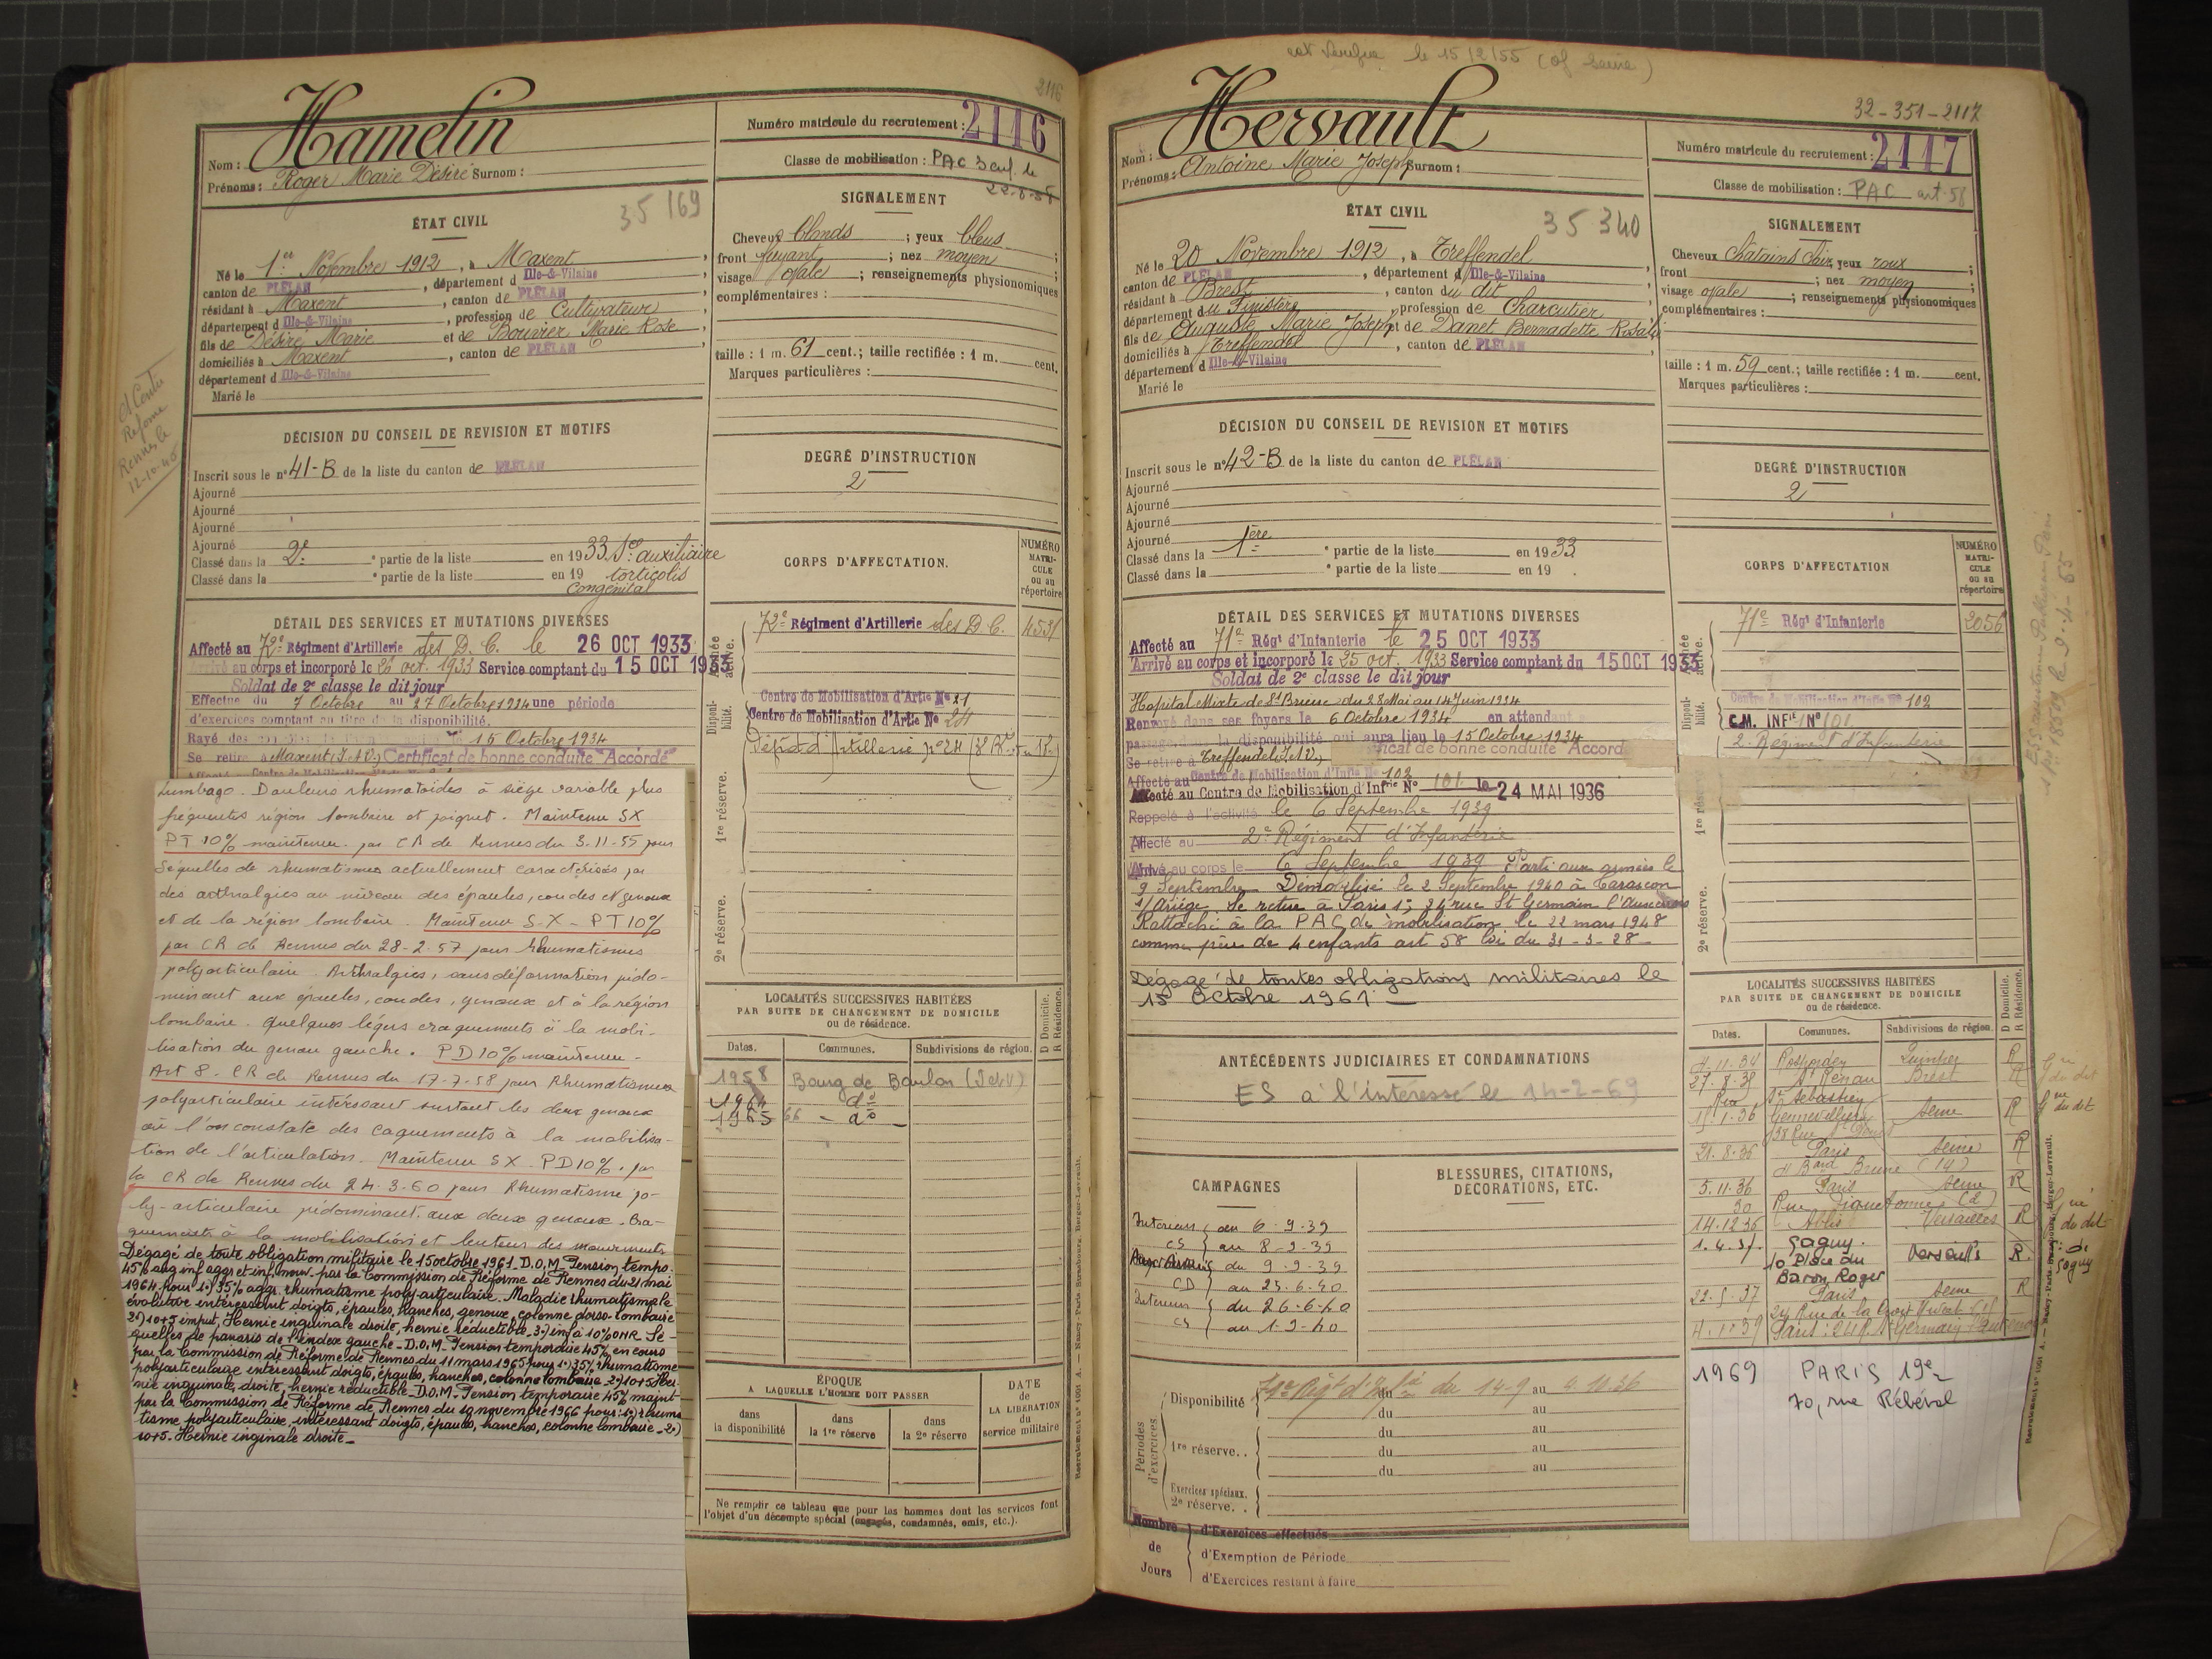 2116
Hamelin
Nom :
Prénoms : Roger Marie Désiré Surnom :
Numéro matricule du recrutement : 2116
Classe de mobilisation : PAC 3 enf. le
22-8-38
ÉTAT CIVIL
35 169
Né le 1er Novembre 1912, à Maxent,
canton de PLÉLAN, département d Ille-&-Vilaine
résidant à Maxent, canton de PLÉLAN
département d Ille-&-Vilaine, profession de Cultivateur
fils de Désiré Marie et de Bouvier Marie Rose,
domiciliés à Maxent, canton de PLÉLAN,
département d Ille-&-Vilaine
Marié le
SIGNALEMENT
Cheveux blonds ; yeux bleus
front fuyant ; nez moyen ;
visage ovale ; renseignements physionomiques
complémentaires :
taille : 1 m. 61 cent.; taille rectifiée : 1 m. cent.
Marques particulières :
Réforme
Rennes le
12-10-45
DÉCISION DU CONSEIL DE REVISION ET MOTIFS
Inscrit sous le n° 41-B de la liste du canton de PLÉLAN
Ajourné
Ajourné
Ajourné
Ajourné
Classé dans la 2e ° partie de la liste en 1933 Sce auxiliaire
Classé dans la ° partie de la liste en 19 torticolis
Congénital
DEGRÉ D'INSTRUCTION
2
CORPS D'AFFECTATION.
NUMÉRO
MATRI-
CULE
ou au
répertoire
DÉTAIL DES SERVICES ET MUTATIONS DIVERSES
Affecté au 72e Régiment d'Artillerie des D. C. le 26 OCT 1933
Arrivé au corps et incorporé le 26 oct. 1933 Service comptant du 15 OCT 1933
Soldat de 2e classe le dit jour
Effectue du 7 Octobre au 27 Octobre 1934 une période
d'exercices comptant au titre de la disponibilité.
Rayé des 15 Octobre 1934
Se retire à Maxent (I.&V.) Certificat de bonne conduite "Accordé"
Lumbago. Douleurs rhumatoïdes à siège variable plus
fréquentes région lombaire et poignet. Maintenu SX
PT 10% maintenue. par CR de Rennes du 3-11-55 pour
Séquelles de rhumatismes actuellement caractérisés par
des arthralgies au niveau des épaules, coudes et genoux
et de la région lombaire. Maintenu S-X - PT 10%
par CR de Rennes du 28-2-57 pour rhumatismes
polyarticulaire. Arthralgies, sans déformation prédo-
minant aux épaules, coudes, genoux et à la région
lombaire. Quelques légers craquements à la mobi-
lisation du genou gauche. PD 10% maintenue -
Art 8. CR de Rennes du 17-7-58 pour Rhumatismes
polyarticulaire intéressant surtout les deux genoux
où l'on constate des caquements à la mobilisa-
tion de l'articulation. Maintenu SX - PD 10%. par
la CR de Rennes du 24.3.60 pour Rhumatisme po-
ly-articulaire prédominant aux deux genoux. Cra-
quements à la mobilisation et lenteur des mouvements
Dégagé de toute obligation militaire le 15 octobre 1961. D.O.M_Pension tempo.
45% aug inf aggr et inf. nouv. par la Commission de Réforme de Rennes du 21 mai
1964 pour 1.) 35% aggr. rhumatisme poly-articulaire. Maladie rhumatismale
évolutive intéressant doigts, épaules, hanches, genoux, colonne dorso-lombaire
2.) 10+5 imput, Hernie inguinale droite, hernie réductible_3.) inf à 10% ONR. Sé-
quelles de panaris de l'index gauche_D.O.M_Pension temporaire 45% en cours
par la Commission de Réforme de Rennes du 11 mars 1965 pour 1.) 35% rhumatisme
polyarticulaire intéressant doigts, épaules, hanches, colonne lombaire_2.) 10+5 Her-
nie inguinale droite, hernie réductible_D.O.M. Pension temporaire 45% maint
par la Commission de Réforme de Rennes du 10 novembre 1966 pour : 1.) rhuma
tisme polyarticulaire, intéressant doigts, épaules, hanches, colonne lombaire_2.)
10+5. Hernie inguinale droite_
Armée
active.
72e Régiment d'Artillerie des D.C. 4531
Disponi-
bilité.
Centre de Mobilisation d'Artie N° 21
Centre de Mobilisation d'Artie N° 24
Dépôt d'Artillerie n° 24
1re réserve.
2e réserve.
LOCALITÉS SUCCESSIVES HABITÉES
PAR SUITE DE CHANGEMENT DE DOMICILE
ou de résidence.
D Domicile.
R Résidence.
Dates. Communes. Subdivisions de région.
1958 Bourg de Baulon (I et V)
1964 - do
1965 66 - do -
ÉPOQUE
A LAQUELLE L'HOMME DOIT PASSER
dans
la disponibilité
dans
la 1re réserve
dans
la 2e réserve
DATE
de
LA LIBÉRATION
du
service militaire
Ne remplir ce tableau que pour les hommes dont les services font
l'objet d'un décompte spécial (engagés, condamnés, omis, etc.).
le 15/2/55
32-351-2117
Hervault
Nom :
Prénoms : Antoine Marie Joseph Surnom :
Numéro matricule du recrutement : 2117
Classe de mobilisation : PAC art. 58
ÉTAT CIVIL
35 340
Né le 20 Novembre 1912, à Treffendel
canton de PLÉLAN, département d Ille-&-Vilaine
résidant à Brest, canton du dit
département du Finistère, profession de Charcutier
fils de Auguste Marie Joseph et de Danet Bernadette Rosalie
domiciliés à Treffendel, canton de PLÉLAN
département d Ille-&-Vilaine
Marié le
SIGNALEMENT
Cheveux Châtains clair yeux roux ;
front ; nez moyen ;
visage ovale ; renseignements physionomiques
complémentaires :
taille : 1 m. 59 cent.; taille rectifiée : 1 m. cent.
Marques particulières :
DÉCISION DU CONSEIL DE REVISION ET MOTIFS
Inscrit sous le n° 42-B de la liste du canton de PLÉLAN
Ajourné
Ajourné
Ajourné
Ajourné
Classé dans la 1ère ° partie de la liste en 1933
Classé dans la ° partie de la liste en 19 .
DEGRÉ D'INSTRUCTION
2
CORPS D'AFFECTATION
NUMÉRO
MATRI-
CULE
ou au
répertoire
DÉTAIL DES SERVICES ET MUTATIONS DIVERSES
Affecté au 71e Régt d'Infanterie le 25 OCT 1933
Arrivé au corps et incorporé le 25 oct. 1933 Service comptant du 15 OCT 1933
Soldat de 2e classe le dit jour
Hôpital Mixte de St Brieuc du 28 Mai au 14 Juin 1934
Renvoyé dans ses foyers le 6 Octobre 1934 en attendant
passage dans la disponibilité qui aura lieu le 15 Octobre 1934
Se retire à Treffendel (I.&V.) de bonne conduite "Accord
Affecté au Centre de Mobilisation d'Infie N° 102
Affecté au Centre de Mobilisation d'Infrie N° 101 le 24 MAI 1936
Rappelé à l'activité le 6 Septembre 1939
Affecté au 2e Régiment d'Infanterie
Arrivé au corps le 6 Septembre 1939 Parti aux armées le
9 Septembre Démobilisé le 2 Septembre 1940 à Tarascon
s/ Ariège Se retire à Paris 1er 24 rue St Germain l'Auxerrois
Rattaché à la PAC de mobilisation le 22 mars 1948
comme père de 4 enfants art 58 loi du 31-3-28-
Dégagé de toutes obligations militaires le
15 Octobre 1961 -
Armée
active.
71e Régt d'Infanterie 2056
Disponi-
bilité.
Centre de Mobilisation d'Infie N° 102
C.M. INFie N° 101
2e Régiment d'Infanterie
1re réserve
2e réserve.
ANTÉCÉDENTS JUDICIAIRES ET CONDAMNATIONS
ES à l'intéressé le 14-2-69
CAMPAGNES
Intérieur du 6-9-39
CS au 8-9-39
Aux Armées du 9-9-39
CD au 25-6-40
Intérieur du 26-6-40
CS au 1-9-40
BLESSURES, CITATIONS,
DÉCORATIONS, ETC.
Périodes
d'exercices
Disponibilité 71e Régt d'Infie du 14-9 au 4-10-36
du au
1re réserve. . du au
du au
du au
Exercices spéciaux.
2e réserve. .
Nombre
de
Jours
d'Exercices effectués
d'Exemption de Période
d'Exercices restant à faire
LOCALITÉS SUCCESSIVES HABITÉES
PAR SUITE DE CHANGEMENT DE DOMICILE
ou de résidence.
D Domicile.
R Résidence.
Dates. Communes. Subdivisions de région.
4.11.34 Rosporden Quimper R
27.8.35 St Renan Brest R
15.1.36 Gennevilliers Seine R
21.8.36 Paris Seine R
11 Bard Brune (14)
5.11.36 Paris Seine R
30 Rue Tiquetonne (2)
14.12.36 Ablis Versailles R
1.4.37. Gagny. Versailles R.
10 Place du
Baron Roger
22.5.37 Paris Seine R
4.1.39 Paris : 24 R St Germain l'Auxerrois
1969 PARIS 19e
70, rue Rébéval